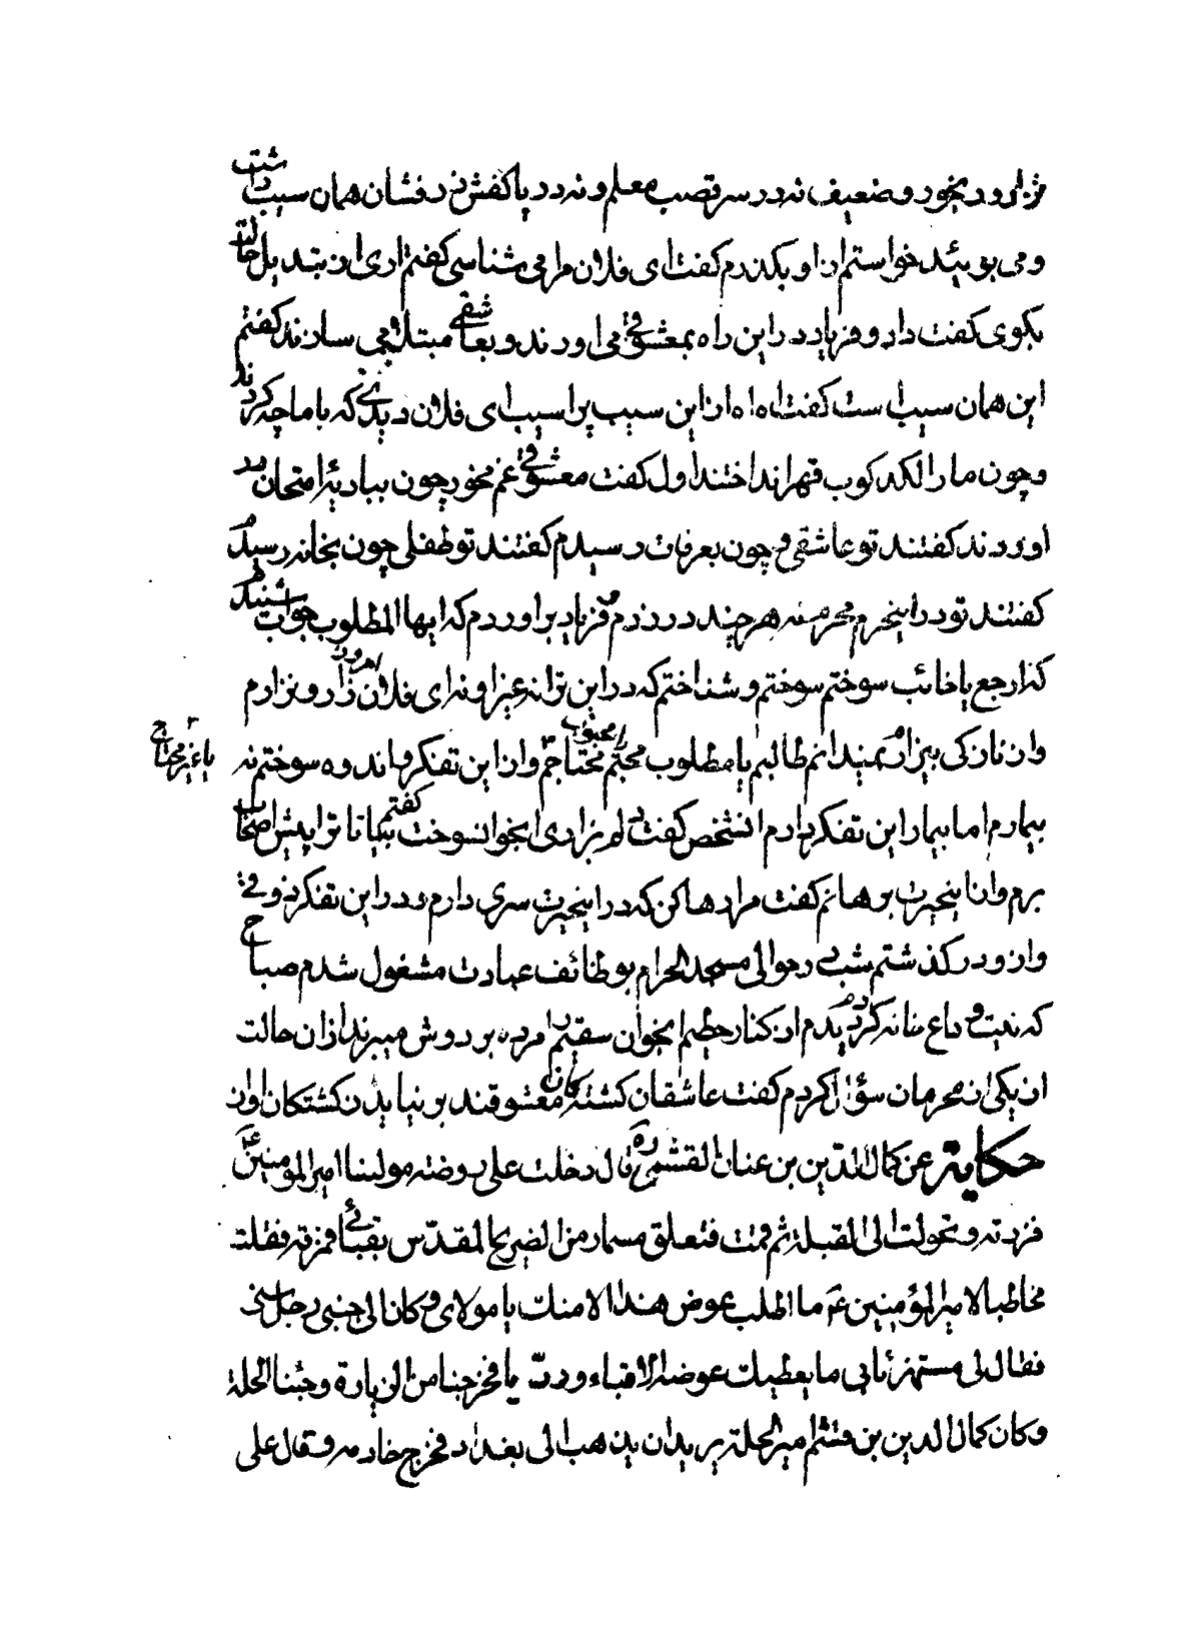 نزار و رنجور و ضعیف نه در سر قصب معلم و نه در پا کفش زرفشان همان سیب داشت
و می بوئید خواستم از او بگذرم گفت ای فلان مرا می شناسی گفتم اری از تبدیل حالت
بگوی گفت داد و فریاد در این راه بمعشوقی می اورند و بعاشقی مبتلا می سازند گفتم
این همان سیب است گفت اه اه از این سیب پر اسیب ای فلان دیدی که با ما چه کردند
و چون ما را لکد کوب قهر انداختند اول گفت معشوقی غم مخور چون ببادیه امتحان در
اوردند گفتند تو عاشقی و چون بعرفات رسیدم گفتند تو طفلی چون بخانه رسیدم
گفتند تو در این حرم محرم نه هر چند در زدم و فریاد بر اوردم که ایها المطلوب جواب شنیدم
که ارجع یا خائب سوختم سوختم و شناختم که در این ترانه غیر او نه ای فلان امروز زار و نزارم
و از نازکی بیزارم نمیدانم طالبم یا مطلوب محبم یا محبوب محتاجم و از این تفکر در مانده سوختم نه
یا غیر محتاج
بیمارم اما بیمار این تفکر دارم انشخص گفت دلم بزاری انجوان سوخت گفتم بیا تا ترا پیش اصحاب
برم و از این حیرت برهانم گفت مرا رها کن که در این حیرت سری دارم و در این تفکر ذوقی
و از و در گذشتم شبی در حوالی مسجد الحرام بوظائف عبادت مشغول شدم صباح
که نیت وداع خانه کردم دیدم از کنار حطیم انجوان سقیم را مرده بر دوش میبرند از ان حالت
از یکی از محرمان سؤال کردم گفت عاشقان کشتکان معشوقند بر نیاید ز کشتکان اواز
حکایة عن کمال الدین بن عنان القشمی ره قال دخلت علی روضة مولینا امیر المؤمنین ع
فزرته و تحولت الی القبلة ثم قمت فتعلق مسمار من الضریح المقدس بقبائی فمزقه فقلت
مخاطبا لامیر المؤمنین ع ما اطلب عوض هذا الا منك یا مولای و کان الی جنبی رجل سنی
فقال لی مستهزئا بی ما یعطیك عوضه الا قباء وردیا فخرجنا من الزیارة و جئنا الحلة
و کان کمال الدین بن قشتم امیر الحلة یرید ان یذهب الی بغداد فخرج خادمه و قال علی